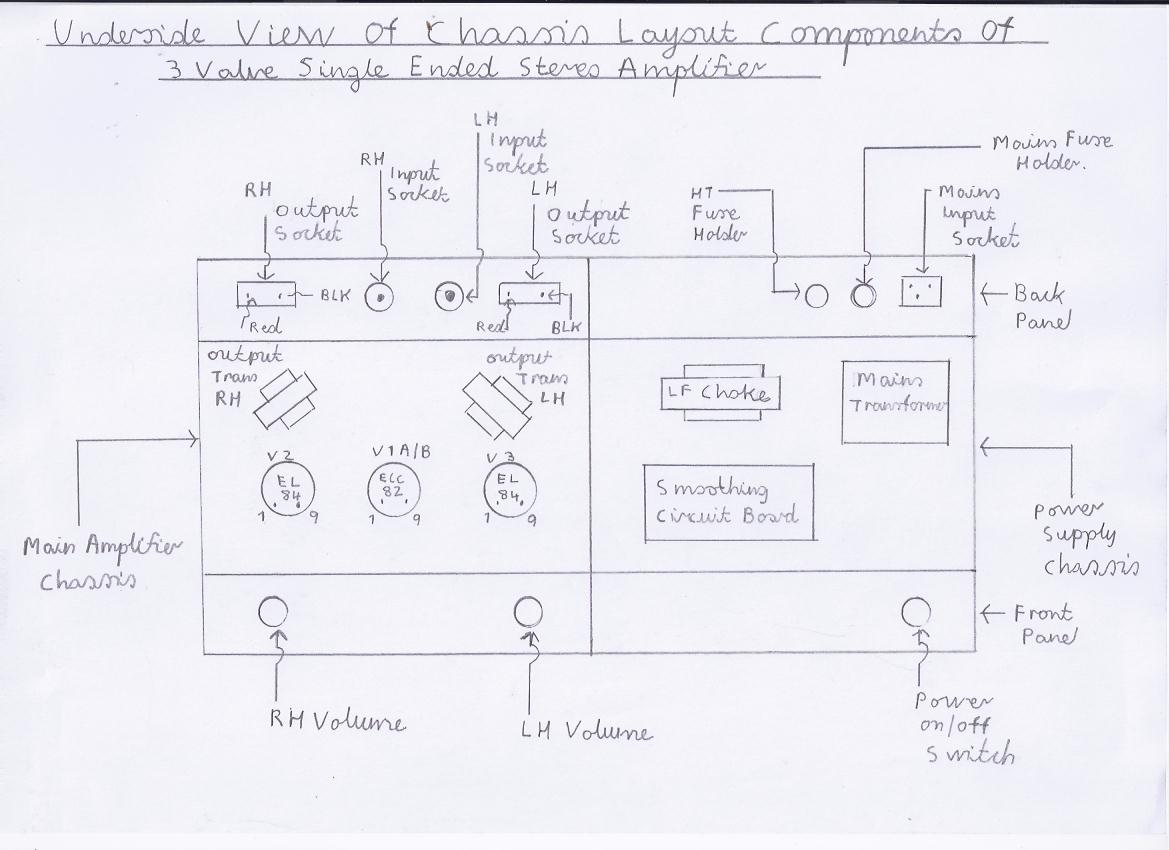 Underside View Of Chassis Layout Components Of
3 Valve Single Ended Stereo Amplifier
LH
Input
Socket
RH
Input
Socket
RH
Output
Socket
LH
Output
Socket
HT
Fuse
Holder
Mains Fuse
Holder.
Mains
Input
Socket
BLK
Red
Red
BLK
Back
Panel
output
Trans
RH
output
Trans
LH
LF Choke
Mains
Transformer
V2
EL
84
1 9
V1A/B
ELC
82
1 9
V3
EL
84
1 9
Smoothing
Circuit Board
Main Amplifier
Chassis
Power
Supply
Chassis
Front
Panel
RH Volume
LH Volume
Power
on/off
Switch